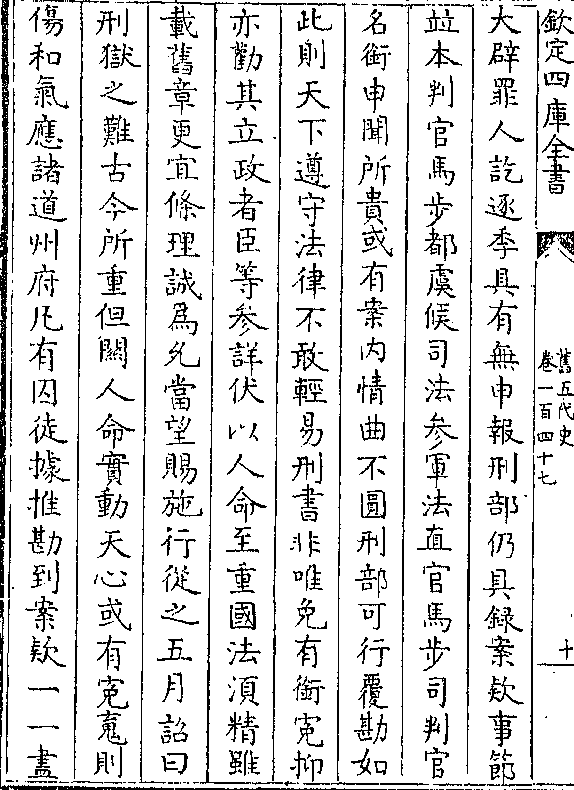 欽定四庫全書
舊五代史
卷一百四十七
十
大辟罪人訖逐季具有無申報刑部仍具録案欵事節
並本判官馬步都虞候司法參軍法直官馬步司判官
名銜申聞所貴或有案内情曲不圓刑部可行覆勘如
此則天下遵守法律不敢輕易刑書非唯免有銜寃抑
亦勸其立政者臣等參詳伏以人命至重國法湏精雖
載舊章更宜條理誠爲允當望賜施行從之五月詔曰
刑獄之難古今所重但關人命實動天心或有寃䰟則
傷和氣應諸道州府凡有囚徒據推勘到案欵一一盡